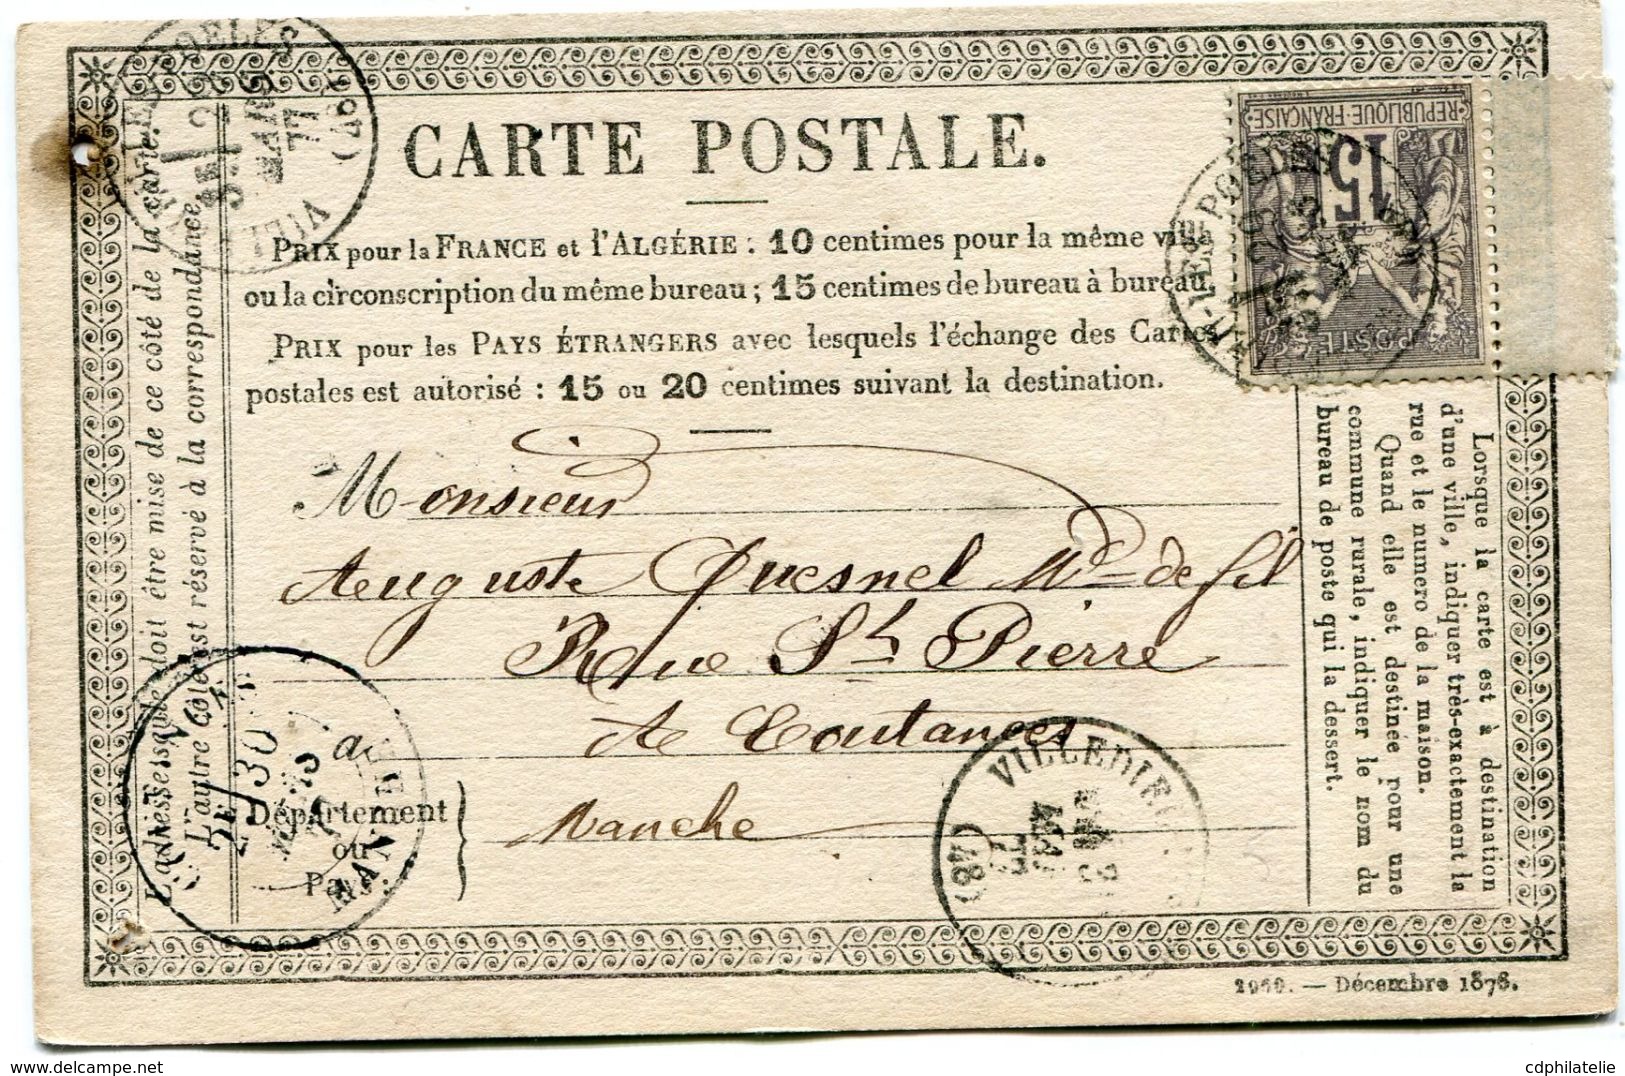 CARTE POSTALE.
PRIX pour la FRANCE et l'ALGÉRIE : 10 centimes pour la même ville
ou la circonscription du même bureau ; 15 centimes de bureau à bureau.
PRIX pour les PAYS ÉTRANGERS avec lesquels l'échange des Cartes
postales est autorisé : 15 ou 20 centimes suivant la destination.
REPUBLIQUE FRANÇAISE
15
POSTE
MARS
77
(487)
L'adresse seule doit être mise de ce côté de la carte.
L'autre côté est réservé à la correspondance.
Monsieur
Auguste Quesnel Md de fil
Rue St Pierre
à Coutances
Département
ou
Pays :
Manche
Lorsque la carte est à destination
d'une ville, indiquer très-exactement la
rue et le numéro de la maison.
Quand elle est destinée pour une
commune rurale, indiquer le nom du
bureau de poste qui la dessert.
2E / 30
MARS
MANCHE
VILLEDIEU
(487)
2960. — Décembre 1876.
© www.delcampe.net
cdphilatelie